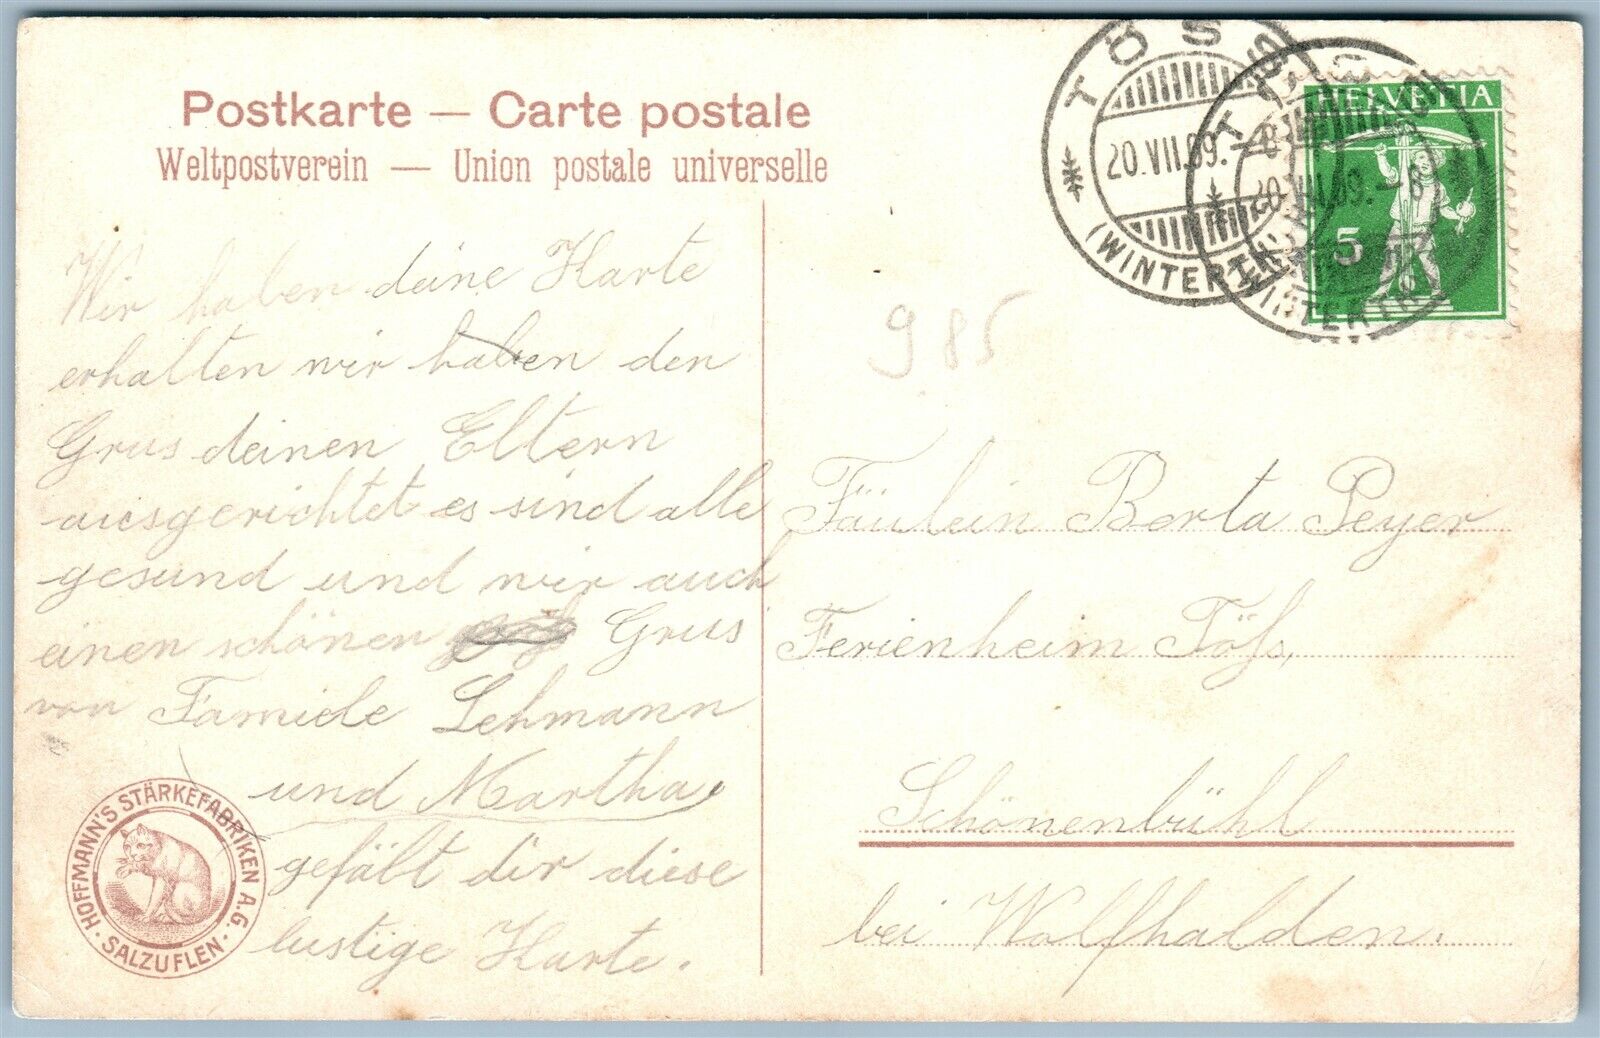 Postkarte — Carte postale
Weltpostverein — Union postale universelle
Wir haben deine Karte
erhalten wir haben den
Grus deinen Eltern
ausgerichtet es sind alle
gesund und wir auch
einen schönen Grus
von Familie Lehmann
und Martha,
gefält dir diese
lustige Karte.
HOFFMANN'S STÄRKEFABRIKEN A.G.
· SALZUFLEN ·
TÖSS
20.VII.09.
(WINTERTH
TÖSS
20.VII.09. – 8
WINTERTH
HELVETIA
5
985
Fäulein Berta Peyer
Ferienheim Töſs,
Schönenbühl
bei Wolfhalden.